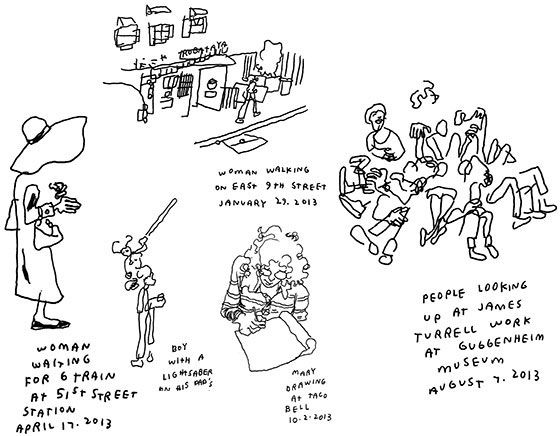 WOMAN WALKING
ON EAST 9TH STREET
JANUARY 29.2013
WOMAN
WAITING
FOR 6 TRAIN
AT 51ST STREET
STATION
APRIL 17.2013
BOY
WITH A
LIGHTSABER
ON HIS DAD'S
MARY
DRAWING
AT TACO
BELL
10.2.2013
PEOPLE LOOKING
UP AT JAMES
TURRELL WORK
AT GUGGENHEIM
MUSEUM
AUGUST 7.2013